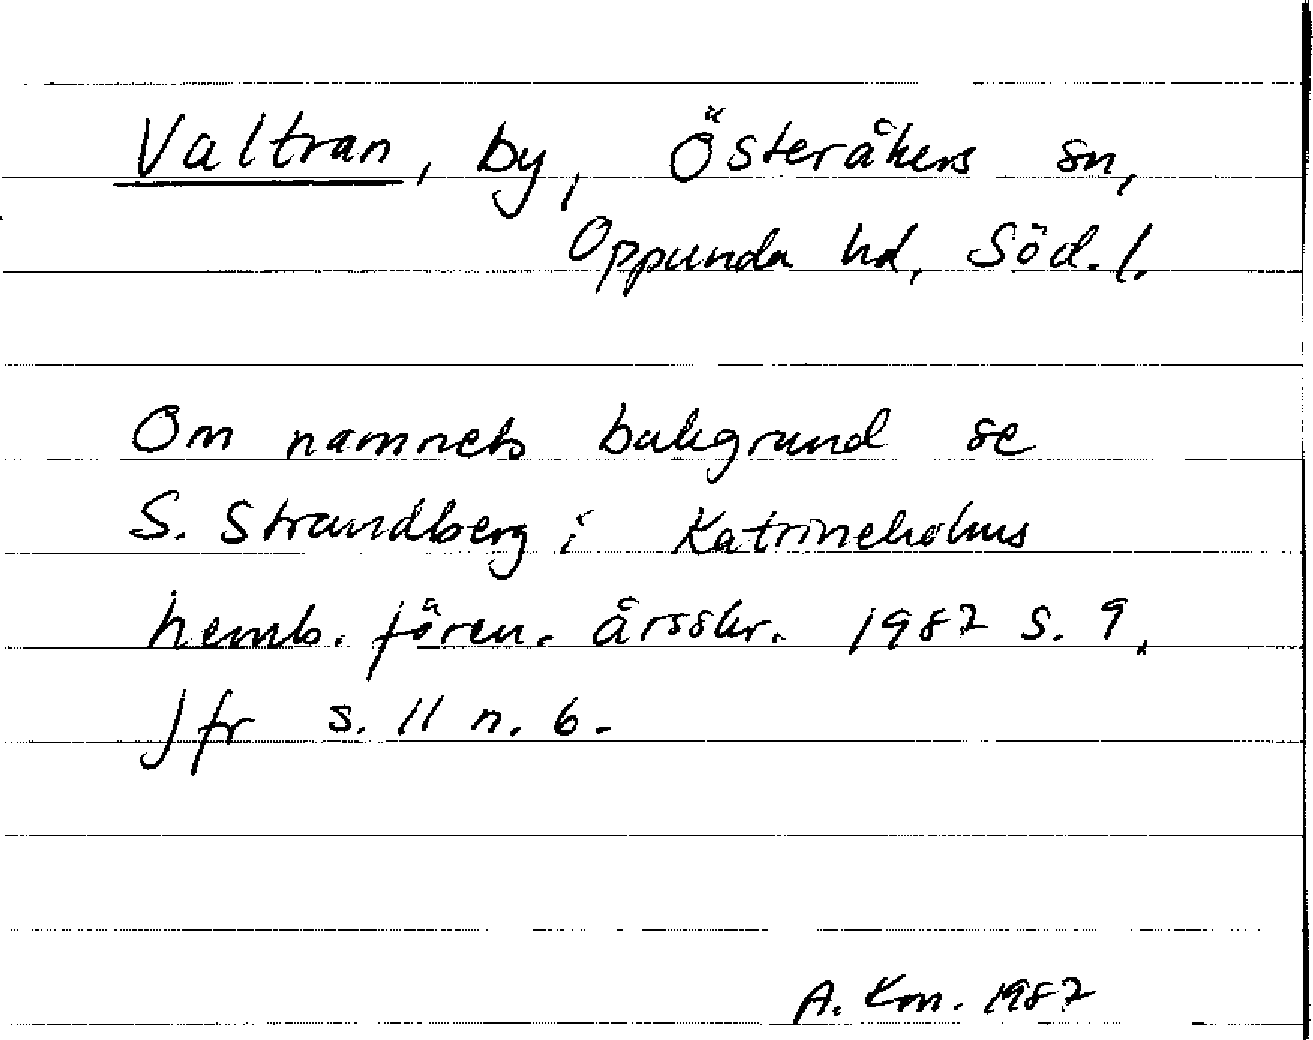 Valtran, by, Österåkers sn,
Oppunda hd, Söd.l.
Om namnets bakgrund se
S. Strandberg i Katrineholms
hemb. fören. årsskr. 1987 s. 9.
Jfr s. 11 n. 6.
A. Km. 1987